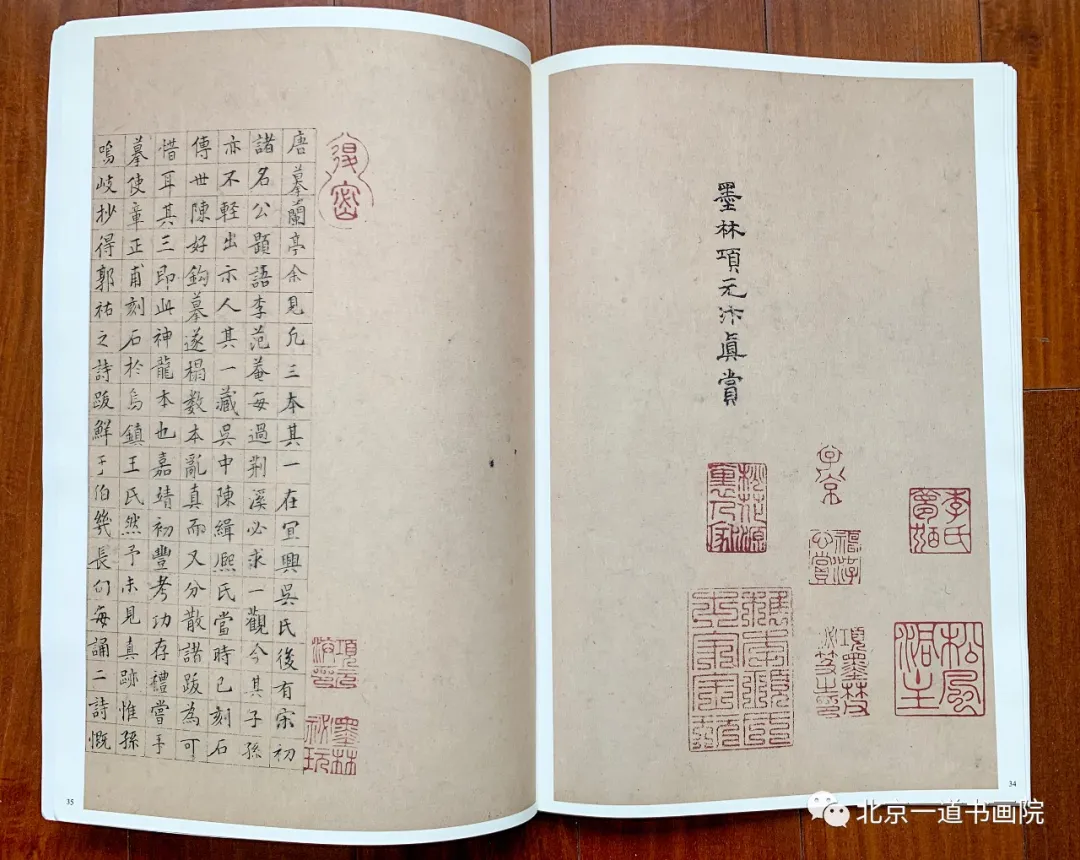 墨林項元汴眞賞
子京
唐摹蘭亭余見凡三本其一在宜興吳氏後有宋初
諸名公題語李范菴每過荆溪必求一觀今其子孫
亦不輕出示人其一藏吳中陳緝熙氏當時已刻石
傳世陳好鈎摹遂搨數本亂真而又分散諸跋為可
惜耳其三即此神龍本也嘉靖初豐考功存禮嘗手
摹使章正甫刻石於烏鎮王氏然予未見真跡惟孫
鳴岐抄得郭祐之詩跋鮮于伯幾長句每誦二詩慨
墨林秘玩
34
35
北京一道书画院